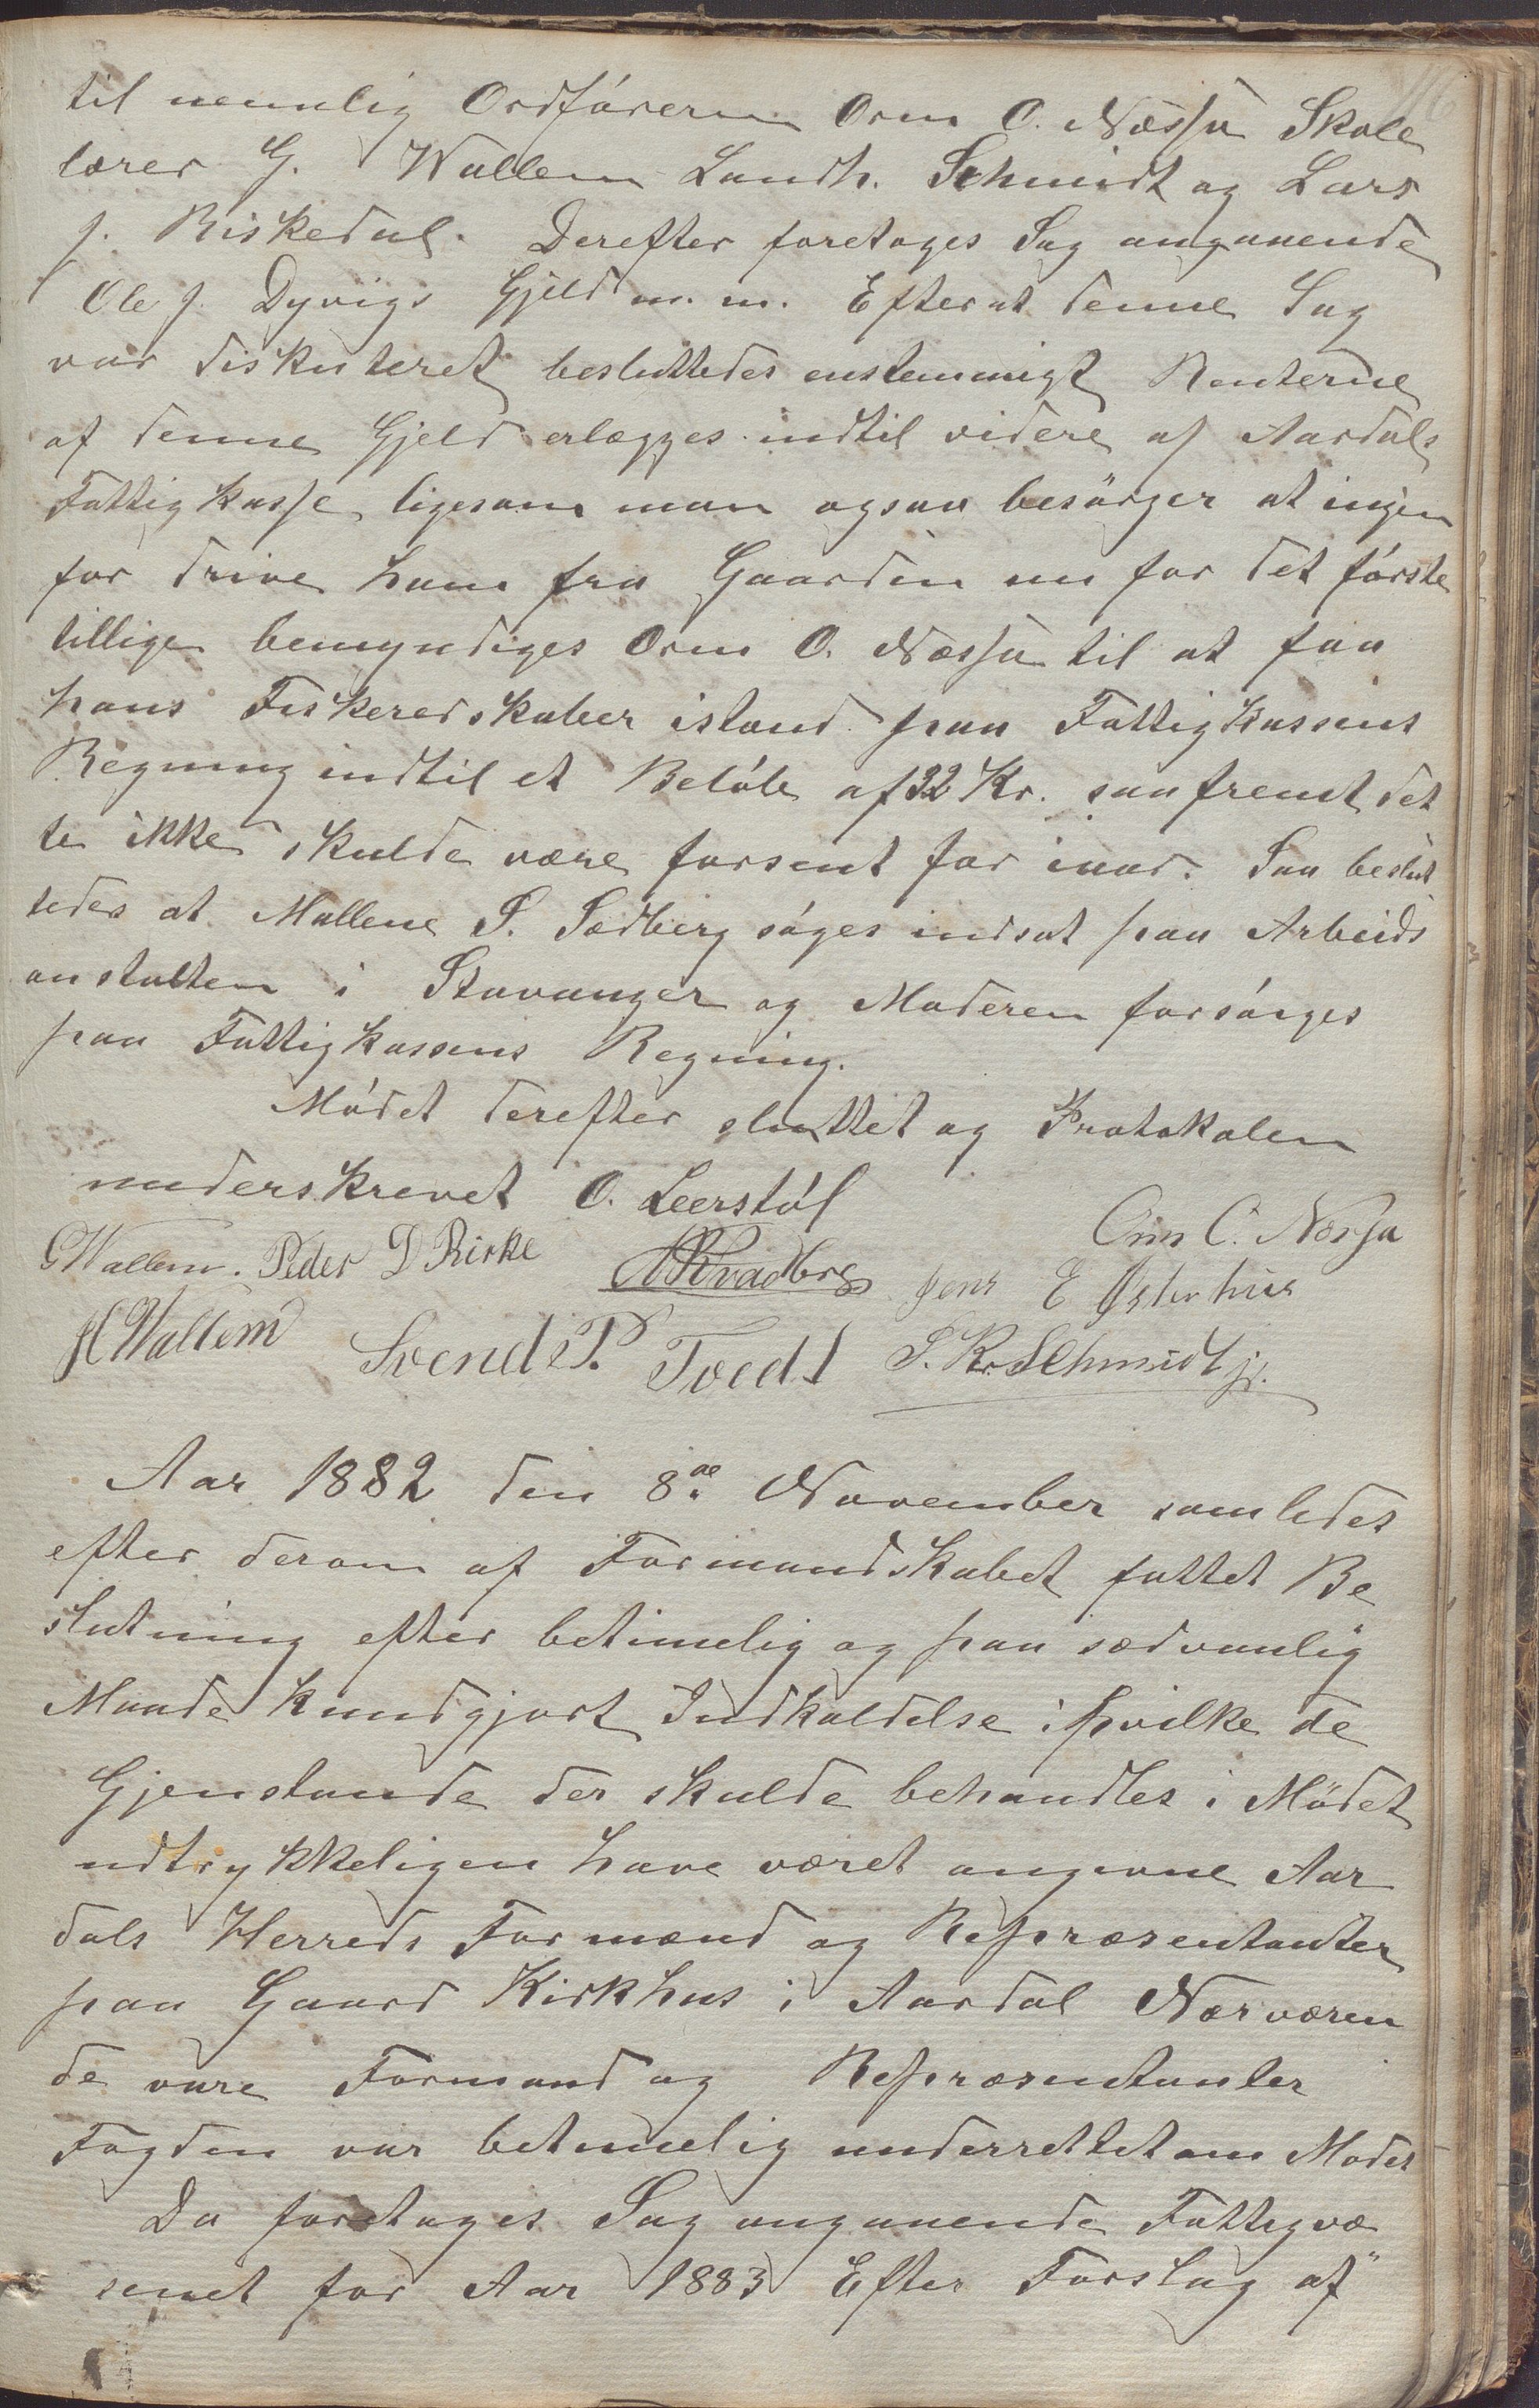 116
til nemnlig Ordføreren Orm O. Næssa Skole
lærer G. Wallem Landh. Schmidt og Lars
J. Riskedal. Derefter foretoges Sag angaaende
Ole J. Dyvigs Gjeld m. m. Efterat denne Sag
var diskuteret besluttedes enstemmigt Renterne
af denne Gjeld erlægges indtil videre af Aardals
Fattigkasse, ligesom man ogsaa besørger at ingen
for drive ham fra Gaarden nu for det første
tillige bemyndiges Orm O. Næssa til at faa
hans Fiskeredskaber istand paa Fattigkassens
Regning indtil et Beløb af 32 Kr. saafremt det
te ikke skulde være forsent for iaar. Saa beslut
tedes at Mallene S. Sædberg søges indsat paa Arbeids
anstalten i Stavanger og Moderen forsørges
paa Fattigkassens Regning.
Mødet derefter sluttet og Protokolen
underskrevet O. Leerstøl
Orm O. Næssa
GWallem. Peder D Rirke
Jens E Østerhus
HWallem Svend P. Tvedt S. Kr. Schmidt jr.
Aar 1882 den 8de November samledes
efter derom af Formandskabet fattet Be
slutning efter betimelig og paa sædvanlig
Maade kundgjort Indkaldelse i hvilke de
Gjenstande der skulde behandles i Mødet
udtrykkeligen have været angivne Aar
dals Herreds Formænd og Repræsentanter
paa Gaard Kirkhus i Aardal Nærværen
de vare Formænd og Repræsentanter
Fogden var betimelig underrettet om Mødet
Da foretoges Sag angaaende Fattigvæ
senet for Aar 1883 Efter Forslag af